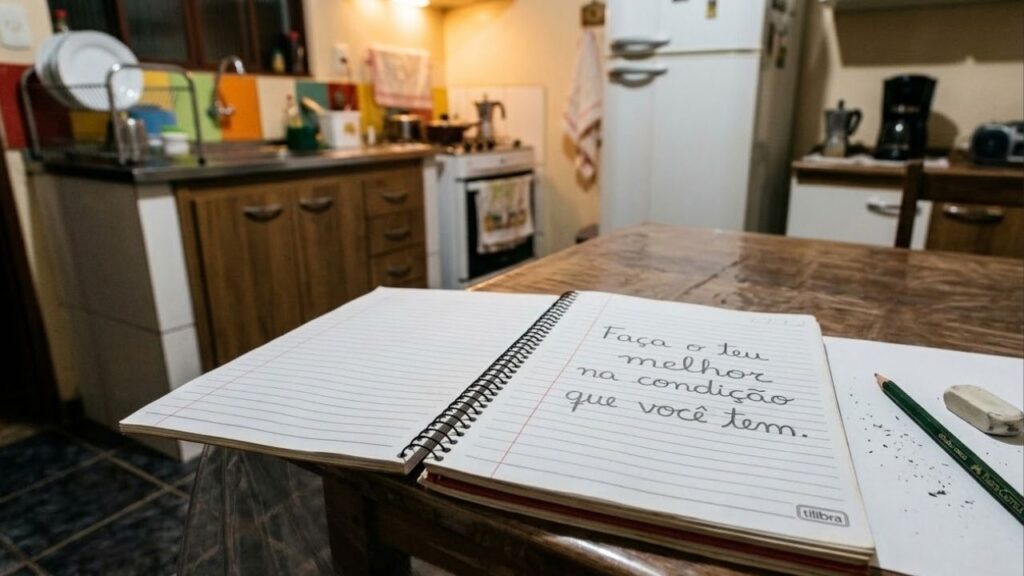 Faça o teu
melhor
na condição
que você tem.
tilibra